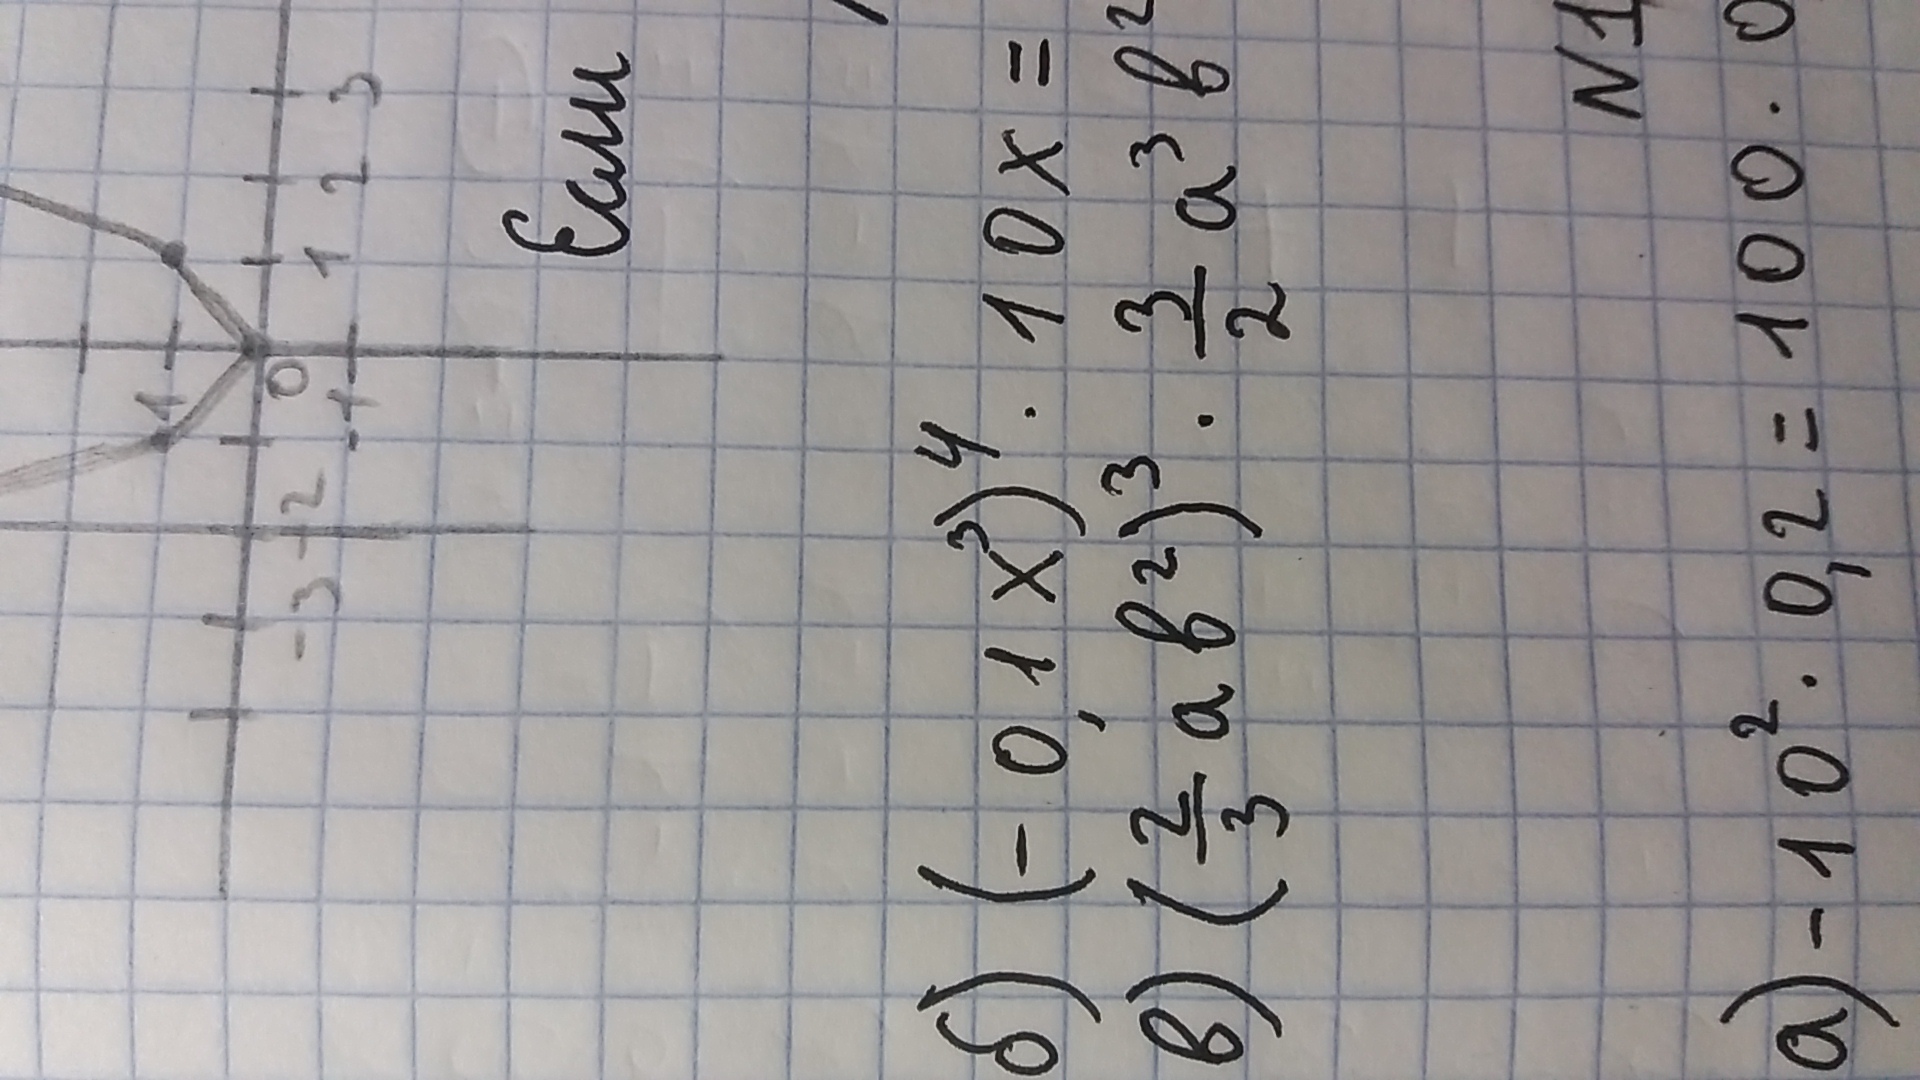 1
-3 -2 0 1 2 3
-1
Если
б) (-0,1x³)⁴ · 10x =
в) (2/3 ab²)³ · 3/2 a³b²
N1
а) -10² · 0,2 = 100 · 0